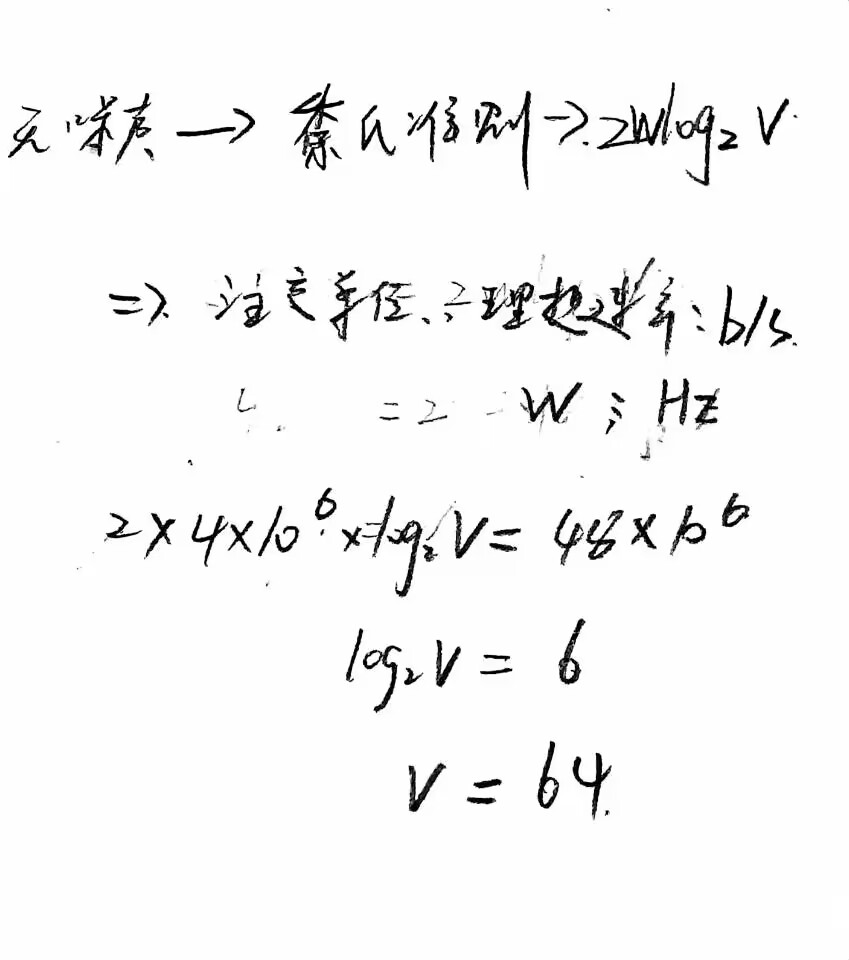 无噪声→奈氏准则→2Wlog₂V
⇒ 注意单位、:理想速率:b/s.
=2 W ; Hz
2×4×10⁶×log₂V=48×10⁶
log₂V=6
V=64.